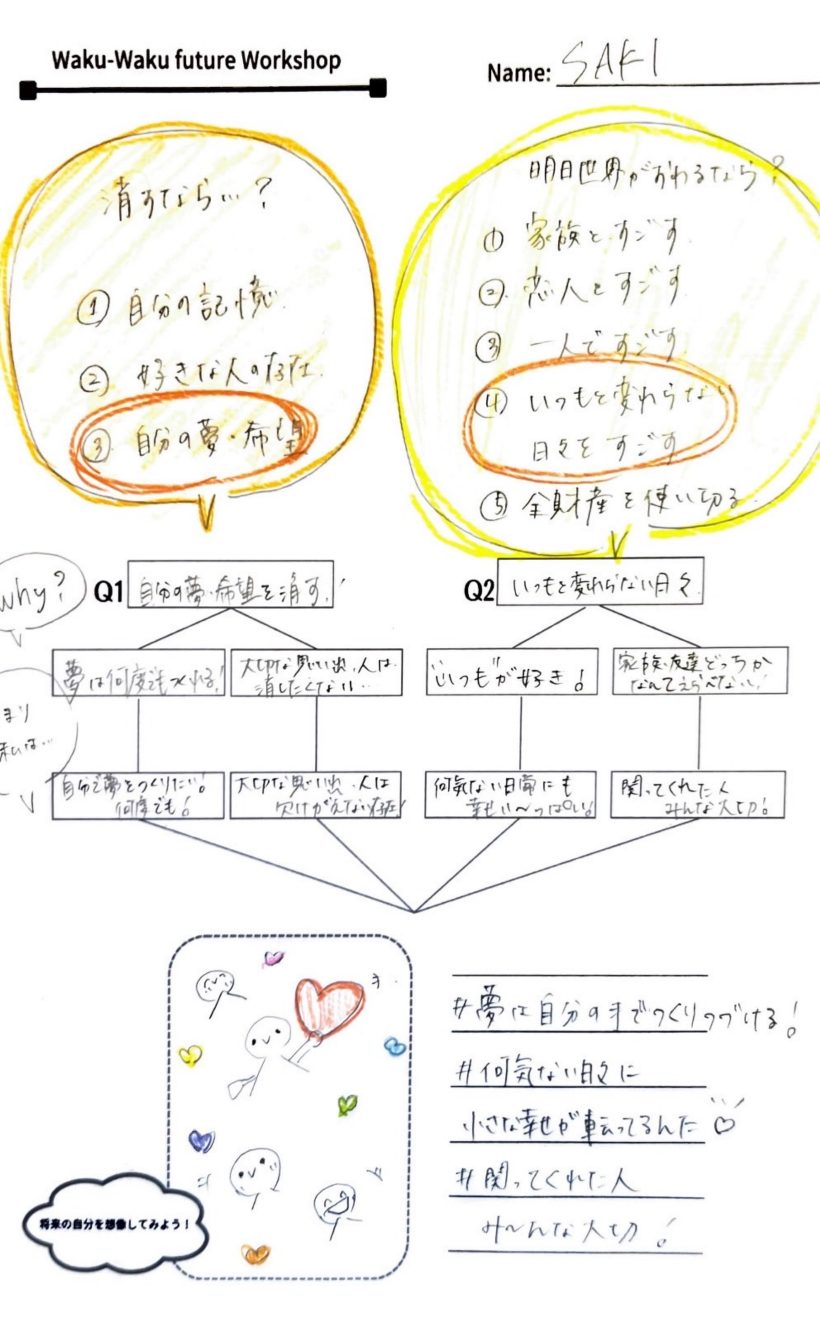 Waku-Waku future Workshop
Name: SAKI
消すなら…?
① 自分の記憶
② 好きな人の存在
③ 自分の夢・希望
明日世界がおわるなら?
① 家族とすごす
② 恋人とすごす
③ 一人ですごす
④ いつもと変わらない
日々をすごす
⑤ 全財産を使い切る
why?
Q1 自分の夢・希望を消す!
Q2 いつもと変わらない日々
夢は何度でもつくれる!
大切な思い出、人は
消したくない…
"いつも"が好き!
家族・友達どっちか
なんてえらべない!
まり
私は…
自分で夢をつくりたい!
何度でも!
大切な思い出、人は
欠けがえない存在!
何気ない日常にも
幸せい〜っぱい!
関ってくれた人
みんな大切!
#夢は自分の手でつくりつづける!
#何気ない日々に
小さな幸せが転ってるんだ♡
#関ってくれた人
み〜んな大切!
将来の自分を想像してみよう!